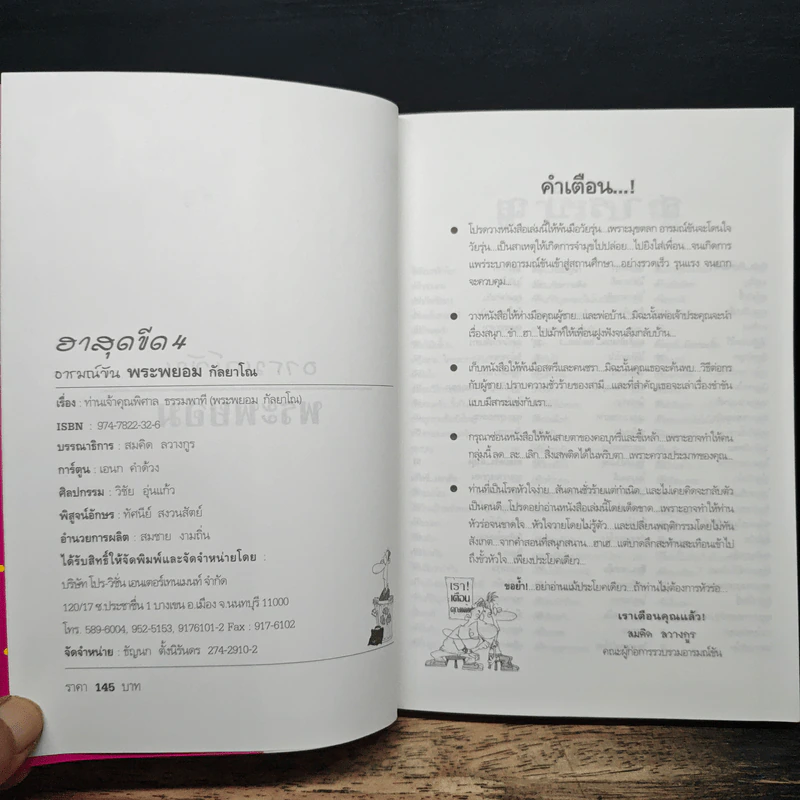 ฮาสุดขีด 4
อารมณ์ขัน พระพยอม กัลยาโณ
เรื่อง : ท่านเจ้าคุณพิศาล ธรรมพาที (พระพยอม กัลยาโณ)
ISBN : 974-7822-32-6
บรรณาธิการ : สมคิด ลวางกูร
การ์ตูน : เอนก คำด้วง
ศิลปกรรม : วิชัย อุ่นแก้ว
พิสูจน์อักษร : ทัศนีย์ สงวนสัตย์
อำนวยการผลิต : สมชาย งามถิ่น
ได้รับสิทธิ์ให้จัดพิมพ์และจัดจำหน่ายโดย :
บริษัท โปร-วิชั่น เอนเตอร์เทนเมนท์ จำกัด
120/17 ซ.ประชาชื่น 1 บางเขน อ.เมือง จ.นนทบุรี 11000
โทร. 589-6004, 952-5153, 9176101-2 Fax : 917-6102
จัดจำหน่าย : ชัญนก ตั้งนิรันดร 274-2910-2
ราคา 145 บาท
คำเตือน...!
โปรดวางหนังสือเล่มนี้ให้พ้นมือวัยรุ่น...เพราะมุขตลก อารมณ์ขันจะโดนใจ
วัยรุ่น...เป็นสาเหตุให้เกิดการจำมุขไปปล่อย...ไปยิงใส่เพื่อน...จนเกิดการ
แพร่ระบาดอารมณ์ขันเข้าสู่สถานศึกษา...อย่างรวดเร็ว รุนแรง จนยาก
จะควบคุม...
วางหนังสือให้ห่างมือคุณผู้ชาย...และพ่อบ้าน...มิฉะนั้นพ่อเจ้าประคุณจะนำ
เรื่องสนุก...ขำ...ฮา...ไปเม้าท์ให้เพื่อนฝูงฟังจนลืมกลับบ้าน...
เก็บหนังสือให้พ้นมือสตรีและคนชรา...มิฉะนั้นคุณเธอจะค้นพบ...วิธีต่อกร
กับผู้ชาย..ปราบความชั่วร้ายของสามี...และที่สำคัญเธอจะเล่าเรื่องขำขัน
แบบมีสาระแข่งกับเรา...
กรุณาซ่อนหนังสือให้พ้นสายตาของคอบุหรี่และขี้เหล้า...เพราะอาจทำให้คน
กลุ่มนี้ ลด...ละ...เลิก...สิ่งเสพติดได้ในพริบตา...เพราะความประมาทของคุณ...
ท่านที่เป็นโรคหัวใจง่าย...สันดานชั่วร้ายแต่กำเนิด...และไม่เคยคิดจะกลับตัว
เป็นคนดี...โปรดอย่าอ่านหนังสือเล่มนี้โดยเด็ดขาด...เพราะอาจทำให้ท่าน
หัวร่อจนขาดใจ...หัวใจวายโดยไม่รู้ตัว...และเปลี่ยนพฤติกรรมโดยไม่ทัน
สังเกต...จากคำสอนที่สนุกสนาน...ฮาเฮ...แต่บาดลึกสะท้านสะเทือนเข้าไป
ถึงขั้วหัวใจ...เพียงประโยคเดียว...
ขอย้ำ!...อย่าอ่านแม้ประโยคเดียว...ถ้าท่านไม่ต้องการหัวร่อ...
เรา!
เตือน
คุณแล้ว
เราเตือนคุณแล้ว!
สมคิด ลวางกูร
คณะผู้ก่อการรวบรวมอารมณ์ขัน